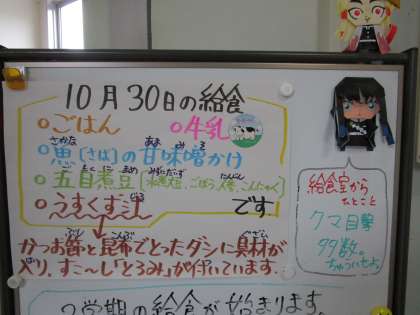 10月30日の給食
○ごはん ○牛乳
さかな あまみそ
○魚[さば]の甘味噌かけ
ごもくにまめ みずにだいず
○五目煮豆[水煮大豆、ごぼう、人参、こんにゃく]
○うすくず汁 です
かつお節と昆布でとったダシに具材が
入り、すこ〜し「とろみ」が付いています。
2学期の給食が始まります。
給食室から
ひとこと
クマ目撃
99数。